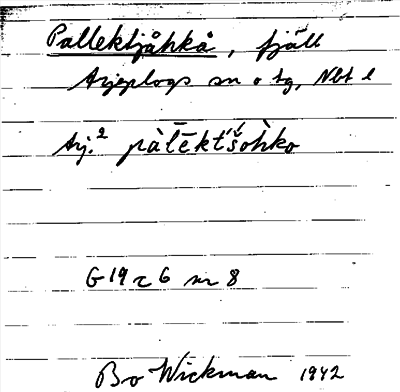 Pallektjåhkå, fjäll
Arjeplogs sn o tg, Nbt l
Arj.² pàlēkt́š́ōh̀ko
G 19 c 6 nr 8
Bo Wickman 1942